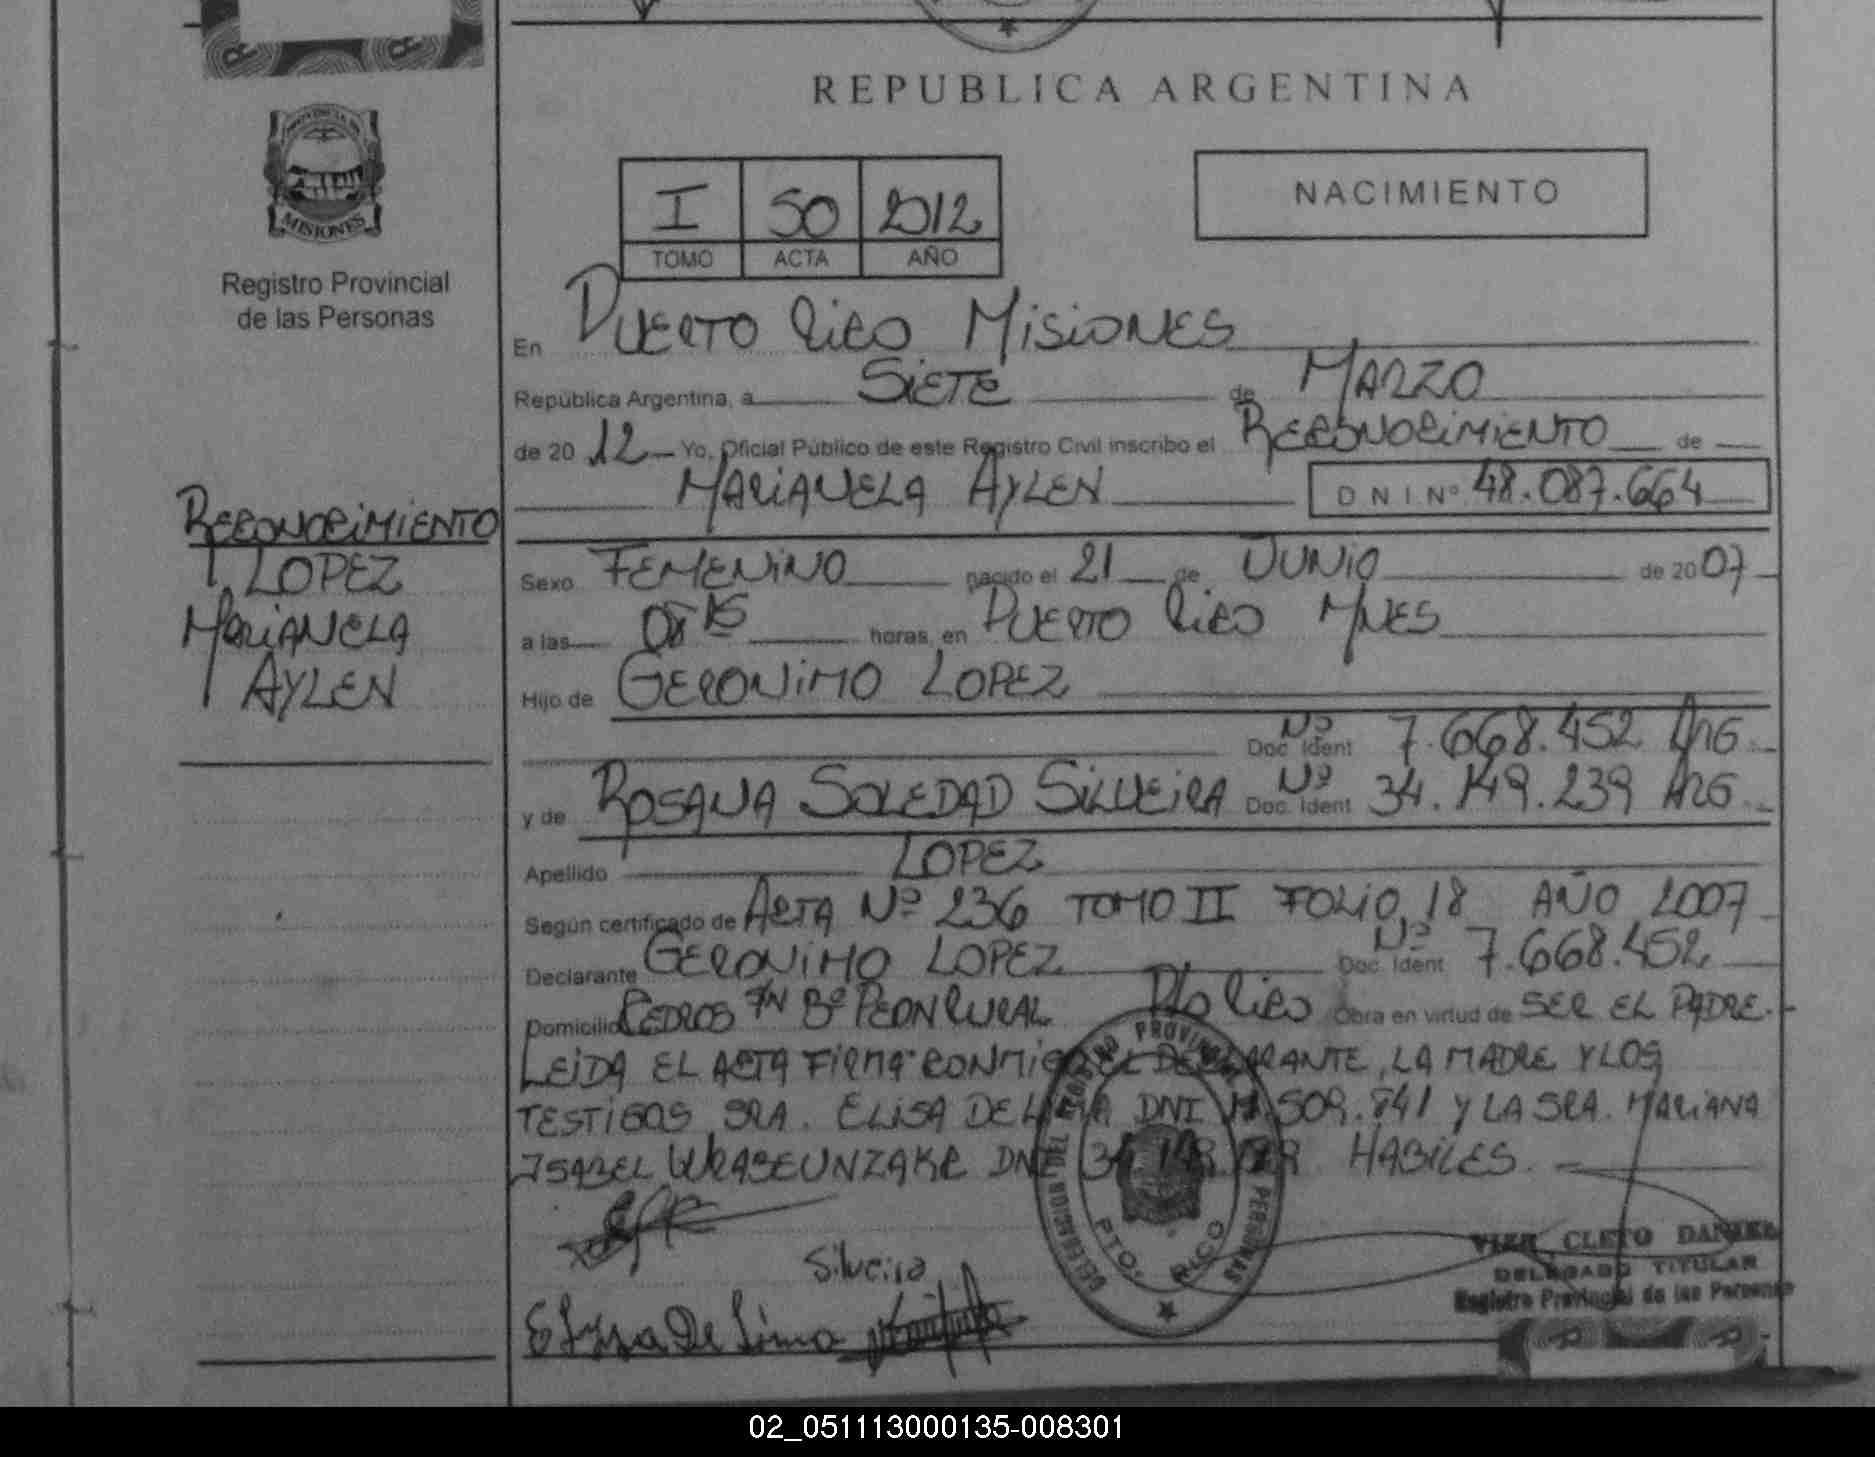 REPUBLICA ARGENTINA
PROVINCIA DE
MISIONES
Registro Provincial
de las Personas
I 50 2012
TOMO ACTA AÑO
NACIMIENTO
En PUERTO RICO MISIONES
República Argentina, a SIETE de MARZO
de 2012 Yo, Oficial Público de este Registro Civil inscribo el RECONOCIMIENTO de
MARIANELA AYLEN D N I Nº 48.087.664
RECONOCIMIENTO
LOPEZ
MARIANELA
AYLEN
Sexo FEMENINO nacido el 21 de JUNIO de 2007
a las 08 15 horas, en PUERTO RICO MNES
Hijo de GERONIMO LOPEZ
Nº Doc. Ident 7.668.452 ARG.
y de ROSANA SOLEDAD SILVEIRA Nº Doc. Ident 34.149.239 ARG.
Apellido LOPEZ
Según certificado de ACTA Nº 236 TOMO II FOLIO 18 AÑO 2007
Declarante GERONIMO LOPEZ Nº Doc. Ident 7.668.452
Domicilio CEDROS Bº PEON RURAL Pto RICO Obra en virtud de SER EL PADRE.-
LEIDA EL ACTA FIRMA CONMIGO EL DECLARANTE, LA MADRE Y LOS
TESTIGOS SRA. ELISA DE LIMA DNI 509.841 Y LA SRA. MARIANA
ISABEL DNI HABILES.
Silveira
Elysa De Lima
DELEGACION DEL REGISTRO PROVINCIAL PERSONAS
PTO. RICO
VIER CLETO DANIEL
DELEGADO TITULAR
Registro Provincial de las Personas
02_051113000135-008301